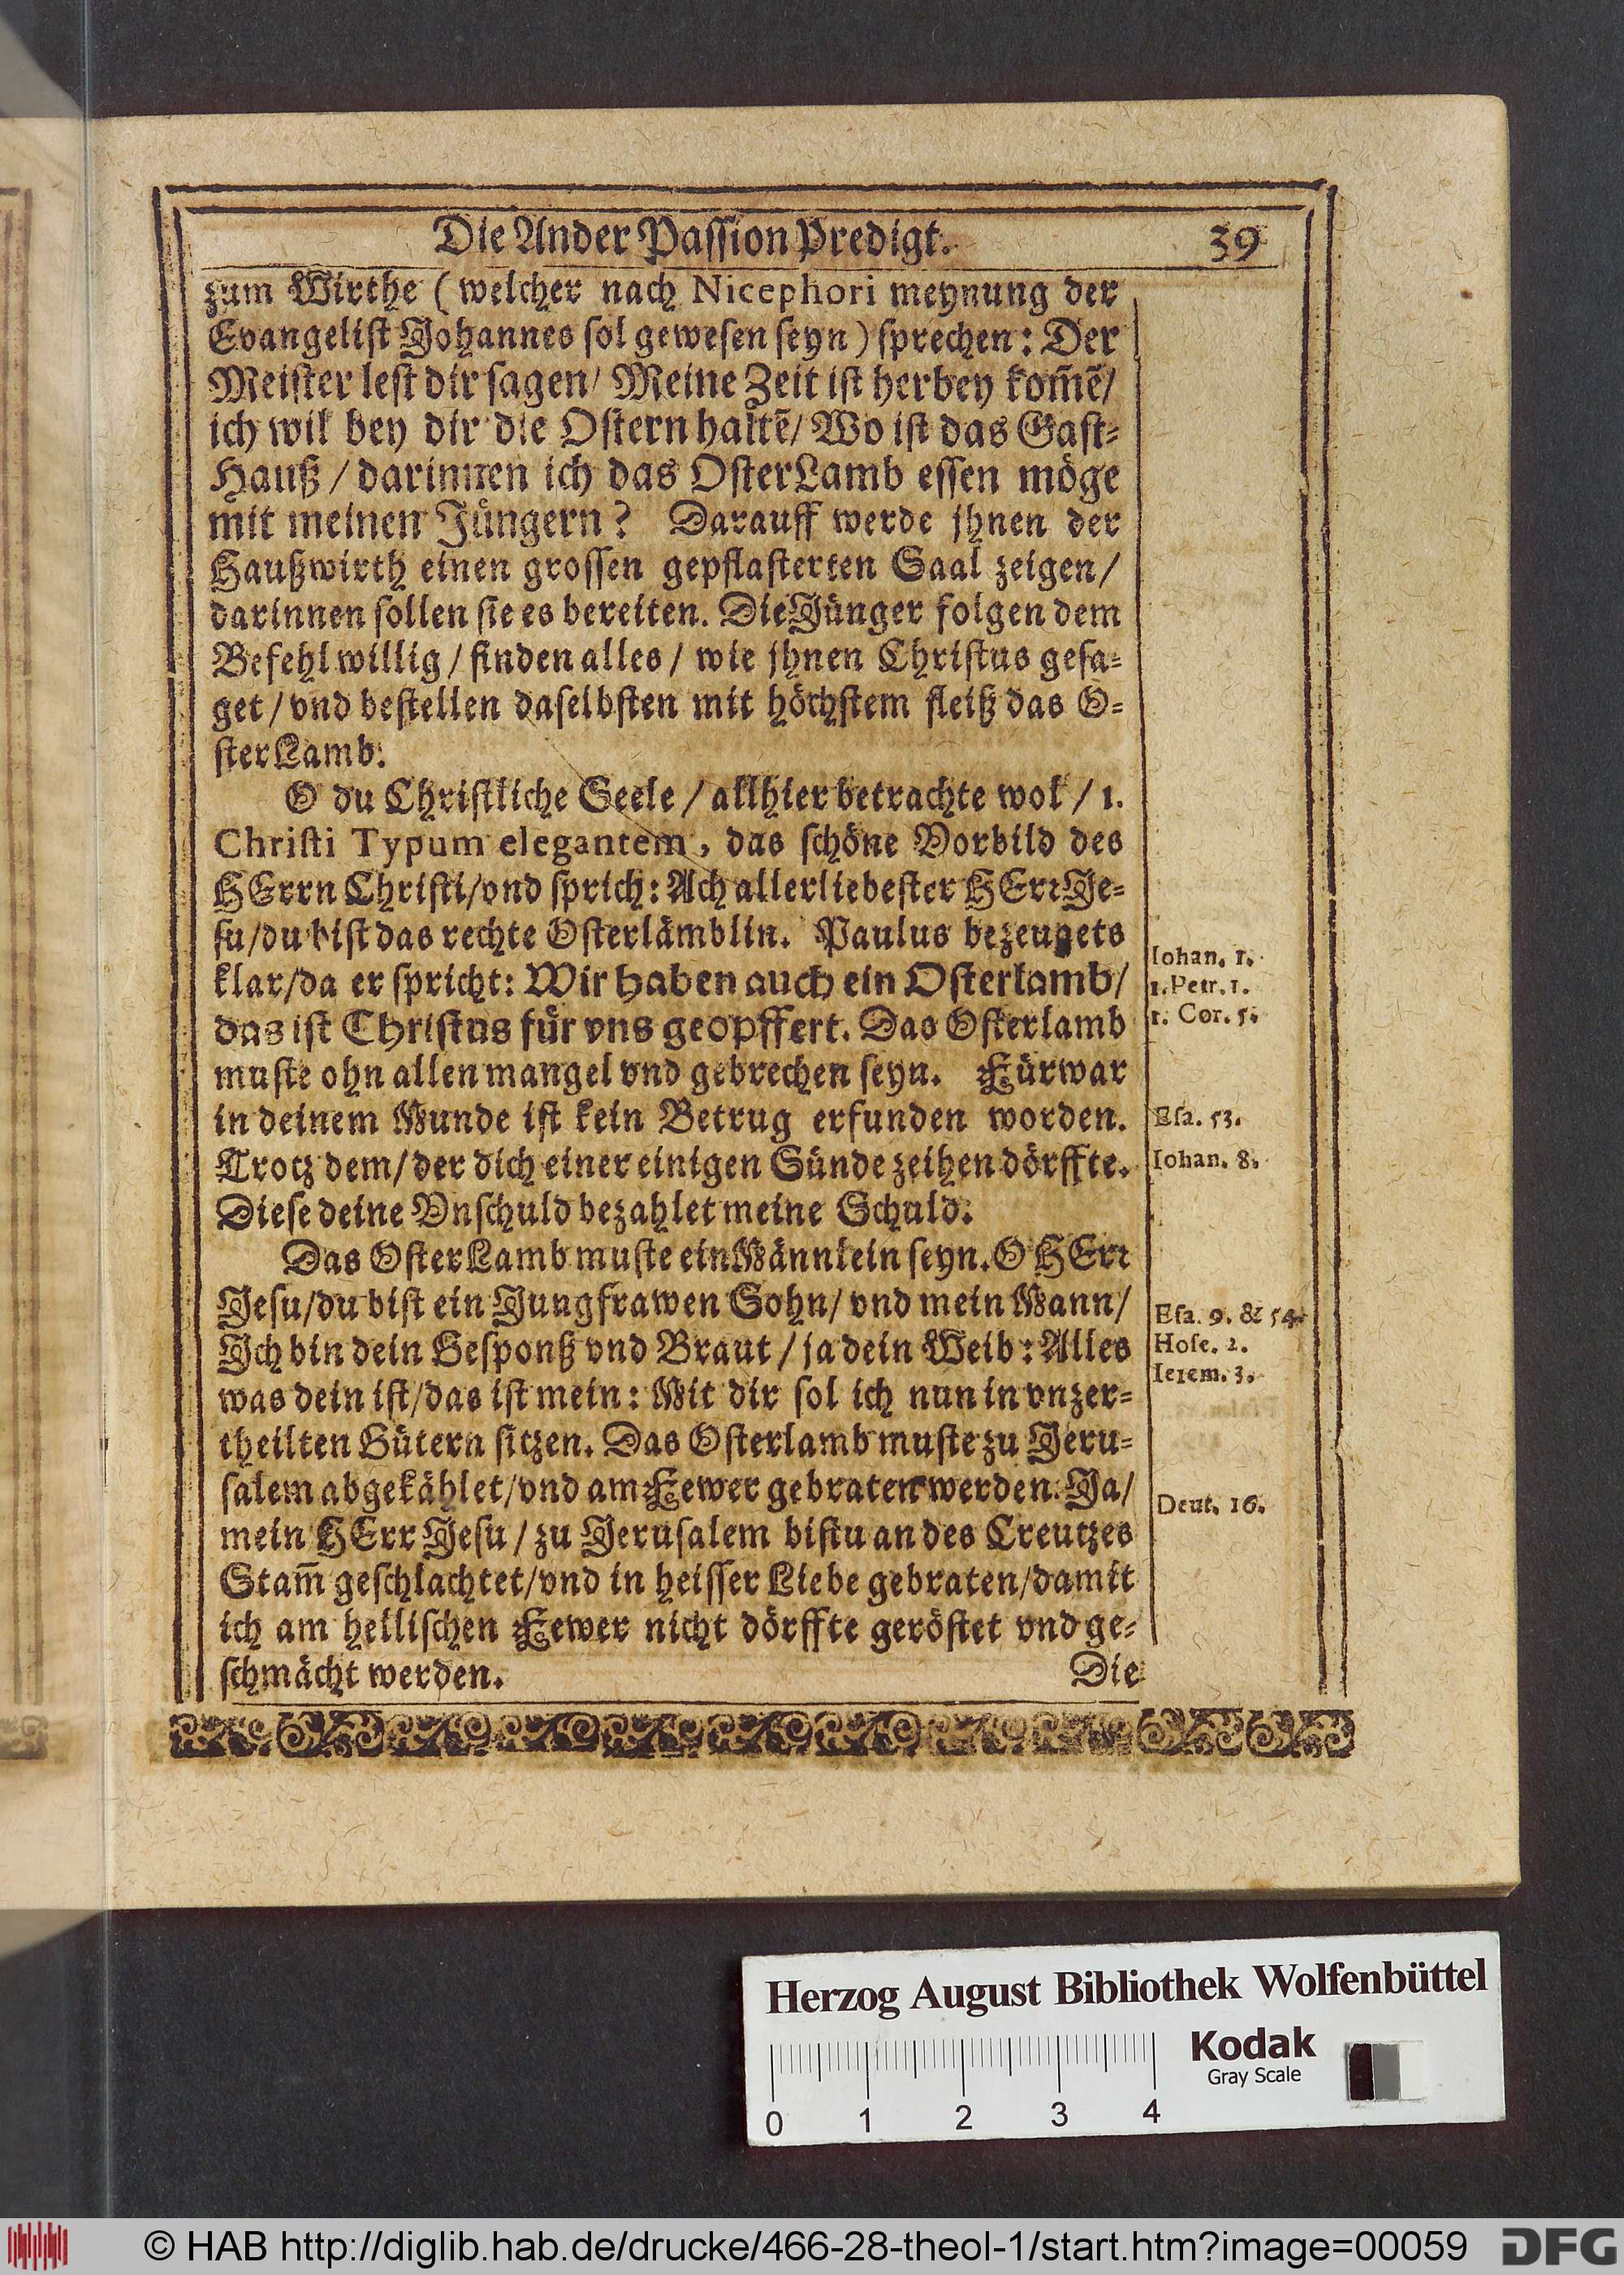 Die Ander Passion Predigt. 39
zum Wirthe (welcher nach Nicephori meynung der
Evangelist Johannes sol gewesen seyn) sprechen: Der
Meister lest dir sagen/ Meine Zeit ist herbey kom̄ē/
ich wil bey dir die Ostern haltē/ Wo ist das Gast-
Hauß/ darinnen ich das OsterLamb essen möge
mit meinen Jüngern? Darauff werde jhnen der
Haußwirth einen grossen gepflasterten Saal zeigen/
darinnen sollen sie es bereiten. Die Jünger folgen dem
Befehl willig/ finden alles/ wie jhnen Christus gesa-
get/ vnd bestellen daselbsten mit höchstem fleiß das O-
sterLamb.
O du Christliche Seele/ allhier betrachte wol/ 1.
Christi Typum elegantem, das schöne Vorbild des
HErrn Christi/ vnd sprich: Ach allerliebester HErr Je-
su/ du bist das rechte Osterlämblin. Paulus bezeugets
klar/ da er spricht: Wir haben auch ein Osterlamb/
das ist Christus für vns geopffert. Das Osterlamb
muste ohn allen mangel vnd gebrechen seyn. Fürwar
in deinem Munde ist kein Betrug erfunden worden.
Trotz dem/ der dich einer einigen Sünde zeihen dörffte.
Diese deine Vnschuld bezahlet meine Schuld.
Das OsterLamb muste ein Männlein seyn. O HErr
Jesu/ du bist ein Jungfrawen Sohn/ vnd mein Mann/
Ich bin dein Gesponß vnd Braut/ ja dein Weib: Alles
was dein ist/ das ist mein: Mit dir sol ich nun in vnzer-
theilten Gütern sitzen. Das Osterlamb muste zu Jeru-
salem abgekählet/ vnd am Fewer gebraten werden. Ja/
mein HErr Jesu/ zu Jerusalem bistu an des Creutzes
Stam̄ geschlachtet/ vnd in heisser Liebe gebraten/ damit
ich am hellischen Fewer nicht dörffte geröstet vnd ge-
schmächt werden.
Die
Iohan. 1.
1. Petr. 1.
1. Cor. 5.
Esa. 53.
Iohan. 8.
Esa. 9. & 54.
Hose. 2.
Ierem. 3.
Deut. 16.
Herzog August Bibliothek Wolfenbüttel
Kodak
Gray Scale
0 1 2 3 4
© HAB http://diglib.hab.de/drucke/466-28-theol-1/start.htm?image=00059
DFG